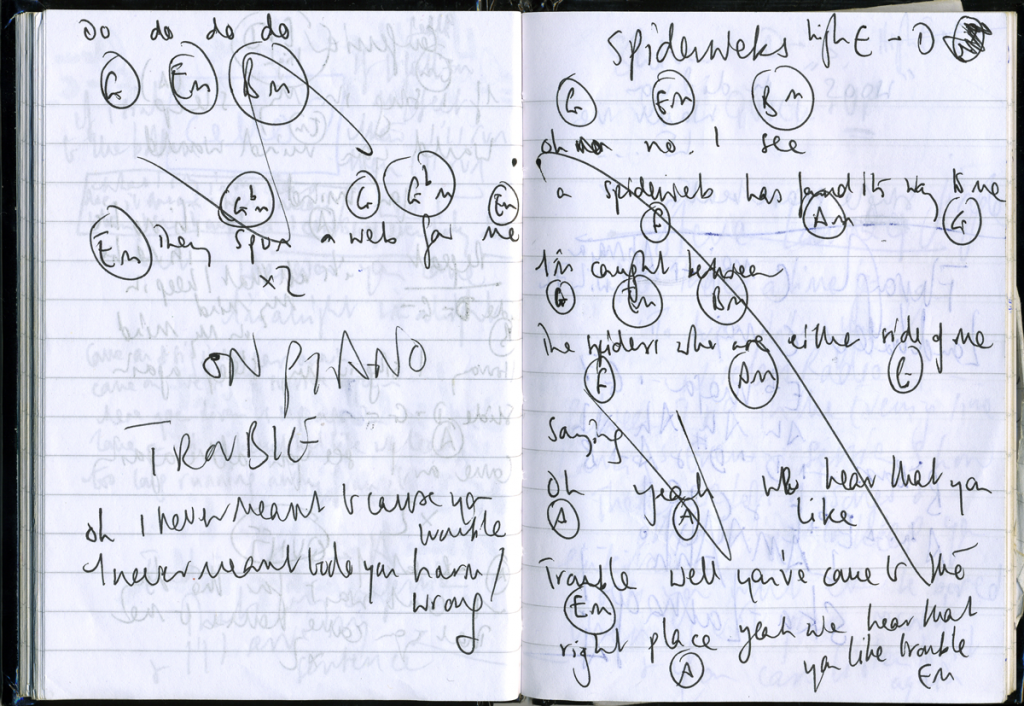 Do do do do
G Em Bm
Gbm G Gbm Em
Em They spun a web for me
x2
ON PIANO
TROUBLE
oh I never meant to cause you
trouble
I never meant to do you harm/
wrong
Spiderwebs high E - D
G Em Bm
oh no. I see
a spiderweb has found its way to me
F Am G
I'm caught between
G Em Bm
The spiders who are either side of me
F Am G
Saying
Oh yeah we hear that you
A A like
Trouble well you've came to the
Em
right place yeah we hear that
A you like trouble
Em